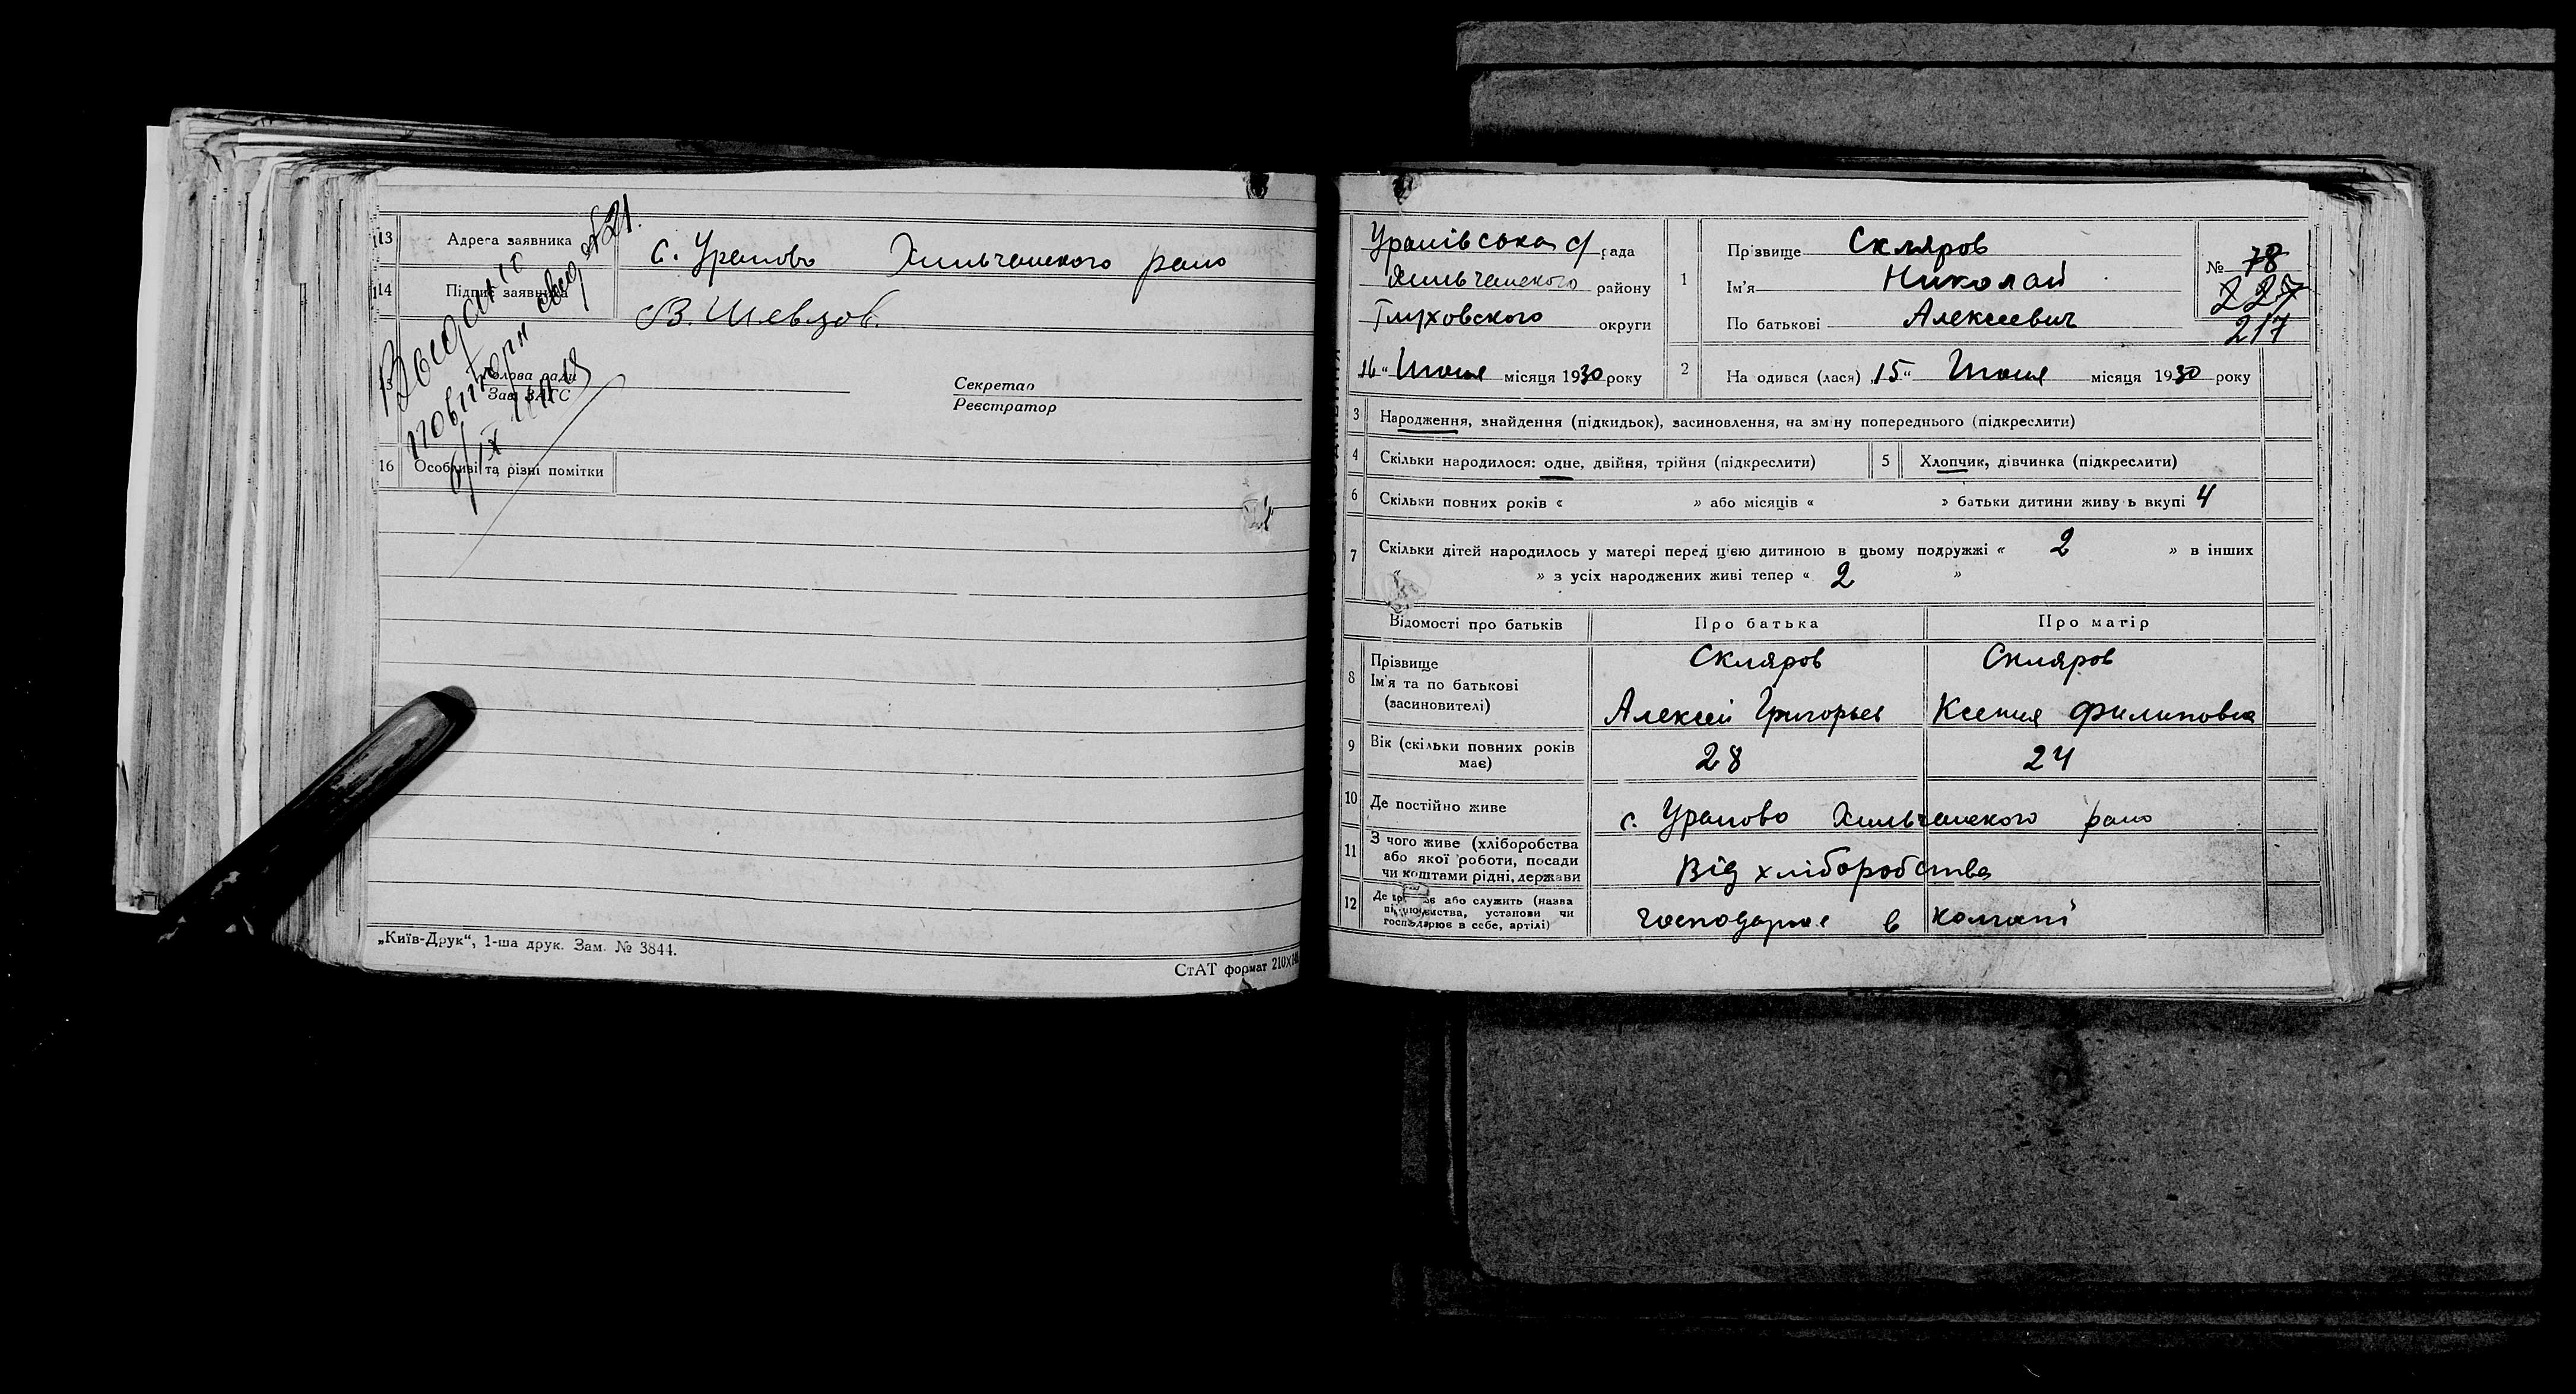 13 Адреса заявника с. Уралово Хильчанского райо
14 Підпис заявника В. Шевцов.
Выдано
повіторн свид №21.
15 Голова ради
Зав. ЗАГС
Секретар
Реєстратор
16 Особливі та різні помітки
„Київ-Друк“, 1-ша друк. Зам. № 3844.
СтАТ формат 210×
Уралівська с/ рада
Хильчанского району
Глуховского округи
16“ Июня місяця 1930 року
1 Прізвище Скляров
Ім'я Николай
По батькові Алексеевич
№ 78
227
217
2 На одився (лася) „15“ Июня місяця 1930 року
3 Народження, знайдення (підкидьок), засиновлення, на зміну попереднього (підкреслити)
4 Скільки народилося: одне, двійня, трійня (підкреслити)
5 Хлопчик, дівчинка (підкреслити)
6 Скільки повних років « » або місяців « » батьки дитини живу ь вкупі 4
7 Скільки дітей народилось у матері перед цією дитиною в цьому подружжі « 2 » в інших
« » з усіх народжених живі тепер « 2 »
Відомості про батьків Про батька Про матір
8 Прізвище Скляров Скляров
Ім'я та по батькові
(засиновителі) Алексей Григорьев Ксения Филиповна
9 Вік (скільки повних років має) 28 24
10 Де постійно живе с. Уралово Хильчанского райо
11 З чого живе (хліборобства
або якої роботи, посади
чи коштами рідні, держави Від хліборобства
12 Де або служить (назва
підприємства, установи чи
господарює в себе, артілі) господарює в